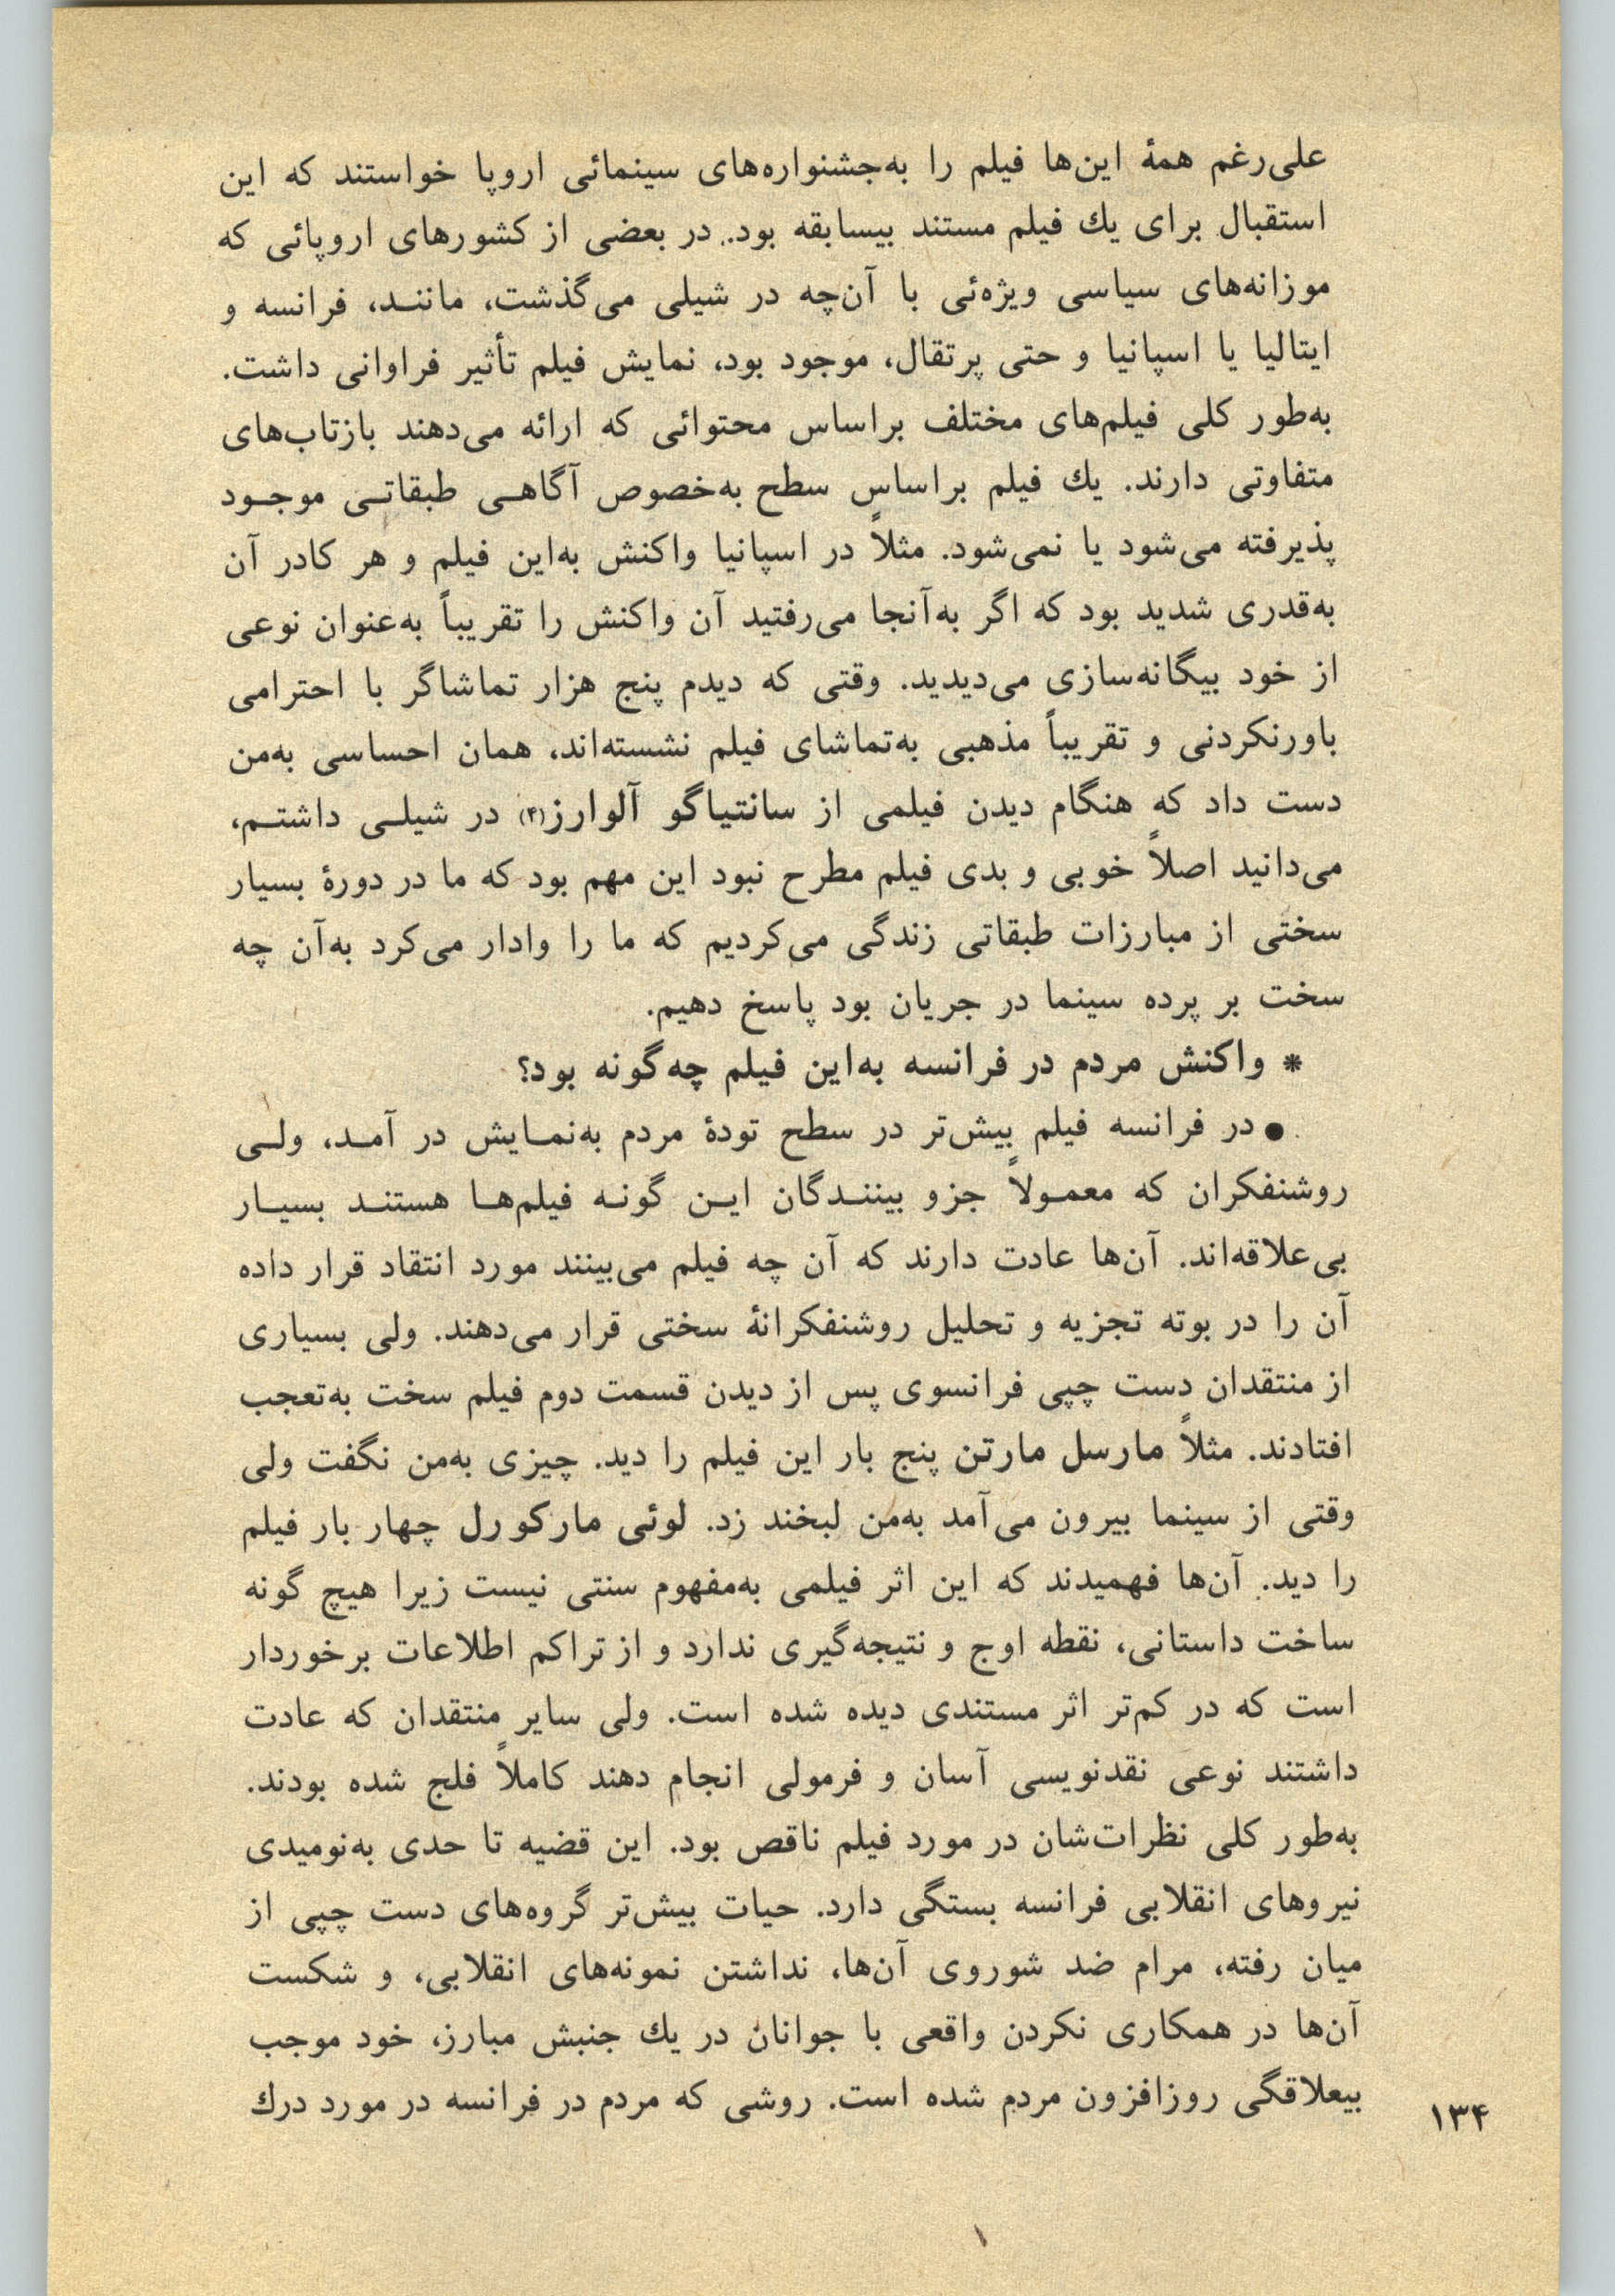 علی‌رغم همهٔ این‌ها فیلم را به‌جشنواره‌های سینمائی اروپا خواستند که این
استقبال برای یك فیلم مستند بیسابقه بود. در بعضی از کشورهای اروپائی که
موزانه‌های سیاسی ویژه‌ئی با آن‌چه در شیلی می‌گذشت، ماننـد، فرانسه و
ایتالیا یا اسپانیا و حتی پرتقال، موجود بود، نمایش فیلم تأثیر فراوانی داشت.
به‌طور کلی فیلم‌های مختلف براساس محتوائی که ارائه می‌دهند بازتاب‌های
متفاوتی دارند. یك فیلم براساس سطح به‌خصوص آگاهـی طبقاتـی موجـود
پذیرفته می‌شود یا نمی‌شود. مثلاً در اسپانیا واکنش به‌این فیلم و هر کادر آن
به‌قدری شدید بود که اگر به‌آنجا می‌رفتید آن واکنش را تقریباً به‌عنوان نوعی
از خود بیگانه‌سازی می‌دیدید. وقتی که دیدم پنج هزار تماشاگر با احترامی
باورنکردنی و تقریباً مذهبی به‌تماشای فیلم نشسته‌اند، همان احساسی به‌من
دست داد که هنگام دیدن فیلمی از سانتیاگو آلوارز(۴) در شیلـی داشتـم،
می‌دانید اصلاً خوبی و بدی فیلم مطرح نبود این مهم بود که ما در دورهٔ بسیار
سختی از مبارزات طبقاتی زندگی می‌کردیم که ما را وادار می‌کرد به‌آن چه
سخت بر پرده سینما در جریان بود پاسخ دهیم.
* واکنش مردم در فرانسه به‌این فیلم چه‌گونه بود؟
● در فرانسه فیلم بیش‌تر در سطح تودهٔ مردم به‌نمـایش در آمـد، ولـی
روشنفکران که معمـولاً جزو بیننـدگان ایـن گونـه فیلم‌هـا هستنـد بسیـار
بی‌علاقه‌اند. آن‌ها عادت دارند که آن چه فیلم می‌بینند مورد انتقاد قرار داده
آن را در بوته تجزیه و تحلیل روشنفکرانهٔ سختی قرار می‌دهند. ولی بسیاری
از منتقدان دست چپی فرانسوی پس از دیدن قسمت دوم فیلم سخت به‌تعجب
افتادند. مثلاً مارسل مارتن پنج بار این فیلم را دید. چیزی به‌من نگفت ولی
وقتی از سینما بیرون می‌آمد به‌من لبخند زد. لوئی مارکورل چهار بار فیلم
را دید. آن‌ها فهمیدند که این اثر فیلمی به‌مفهوم سنتی نیست زیرا هیچ گونه
ساخت داستانی، نقطه اوج و نتیجه‌گیری ندارد و از تراکم اطلاعات برخوردار
است که در کم‌تر اثر مستندی دیده شده است. ولی سایر منتقدان که عادت
داشتند نوعی نقدنویسی آسان و فرمولی انجام دهند کاملاً فلج شده بودند.
به‌طور کلی نظرات‌شان در مورد فیلم ناقص بود. این قضیه تا حدی به‌نومیدی
نیروهای انقلابی فرانسه بستگی دارد. حیات بیش‌تر گروه‌های دست چپی از
میان رفته، مرام ضد شوروی آن‌ها، نداشتن نمونه‌های انقلابی، و شکست
آن‌ها در همکاری نکردن واقعی با جوانان در یك جنبش مبارز، خود موجب
بیعلاقگی روزافزون مردم شده است. روشی که مردم در فرانسه در مورد درك
۱۳۴